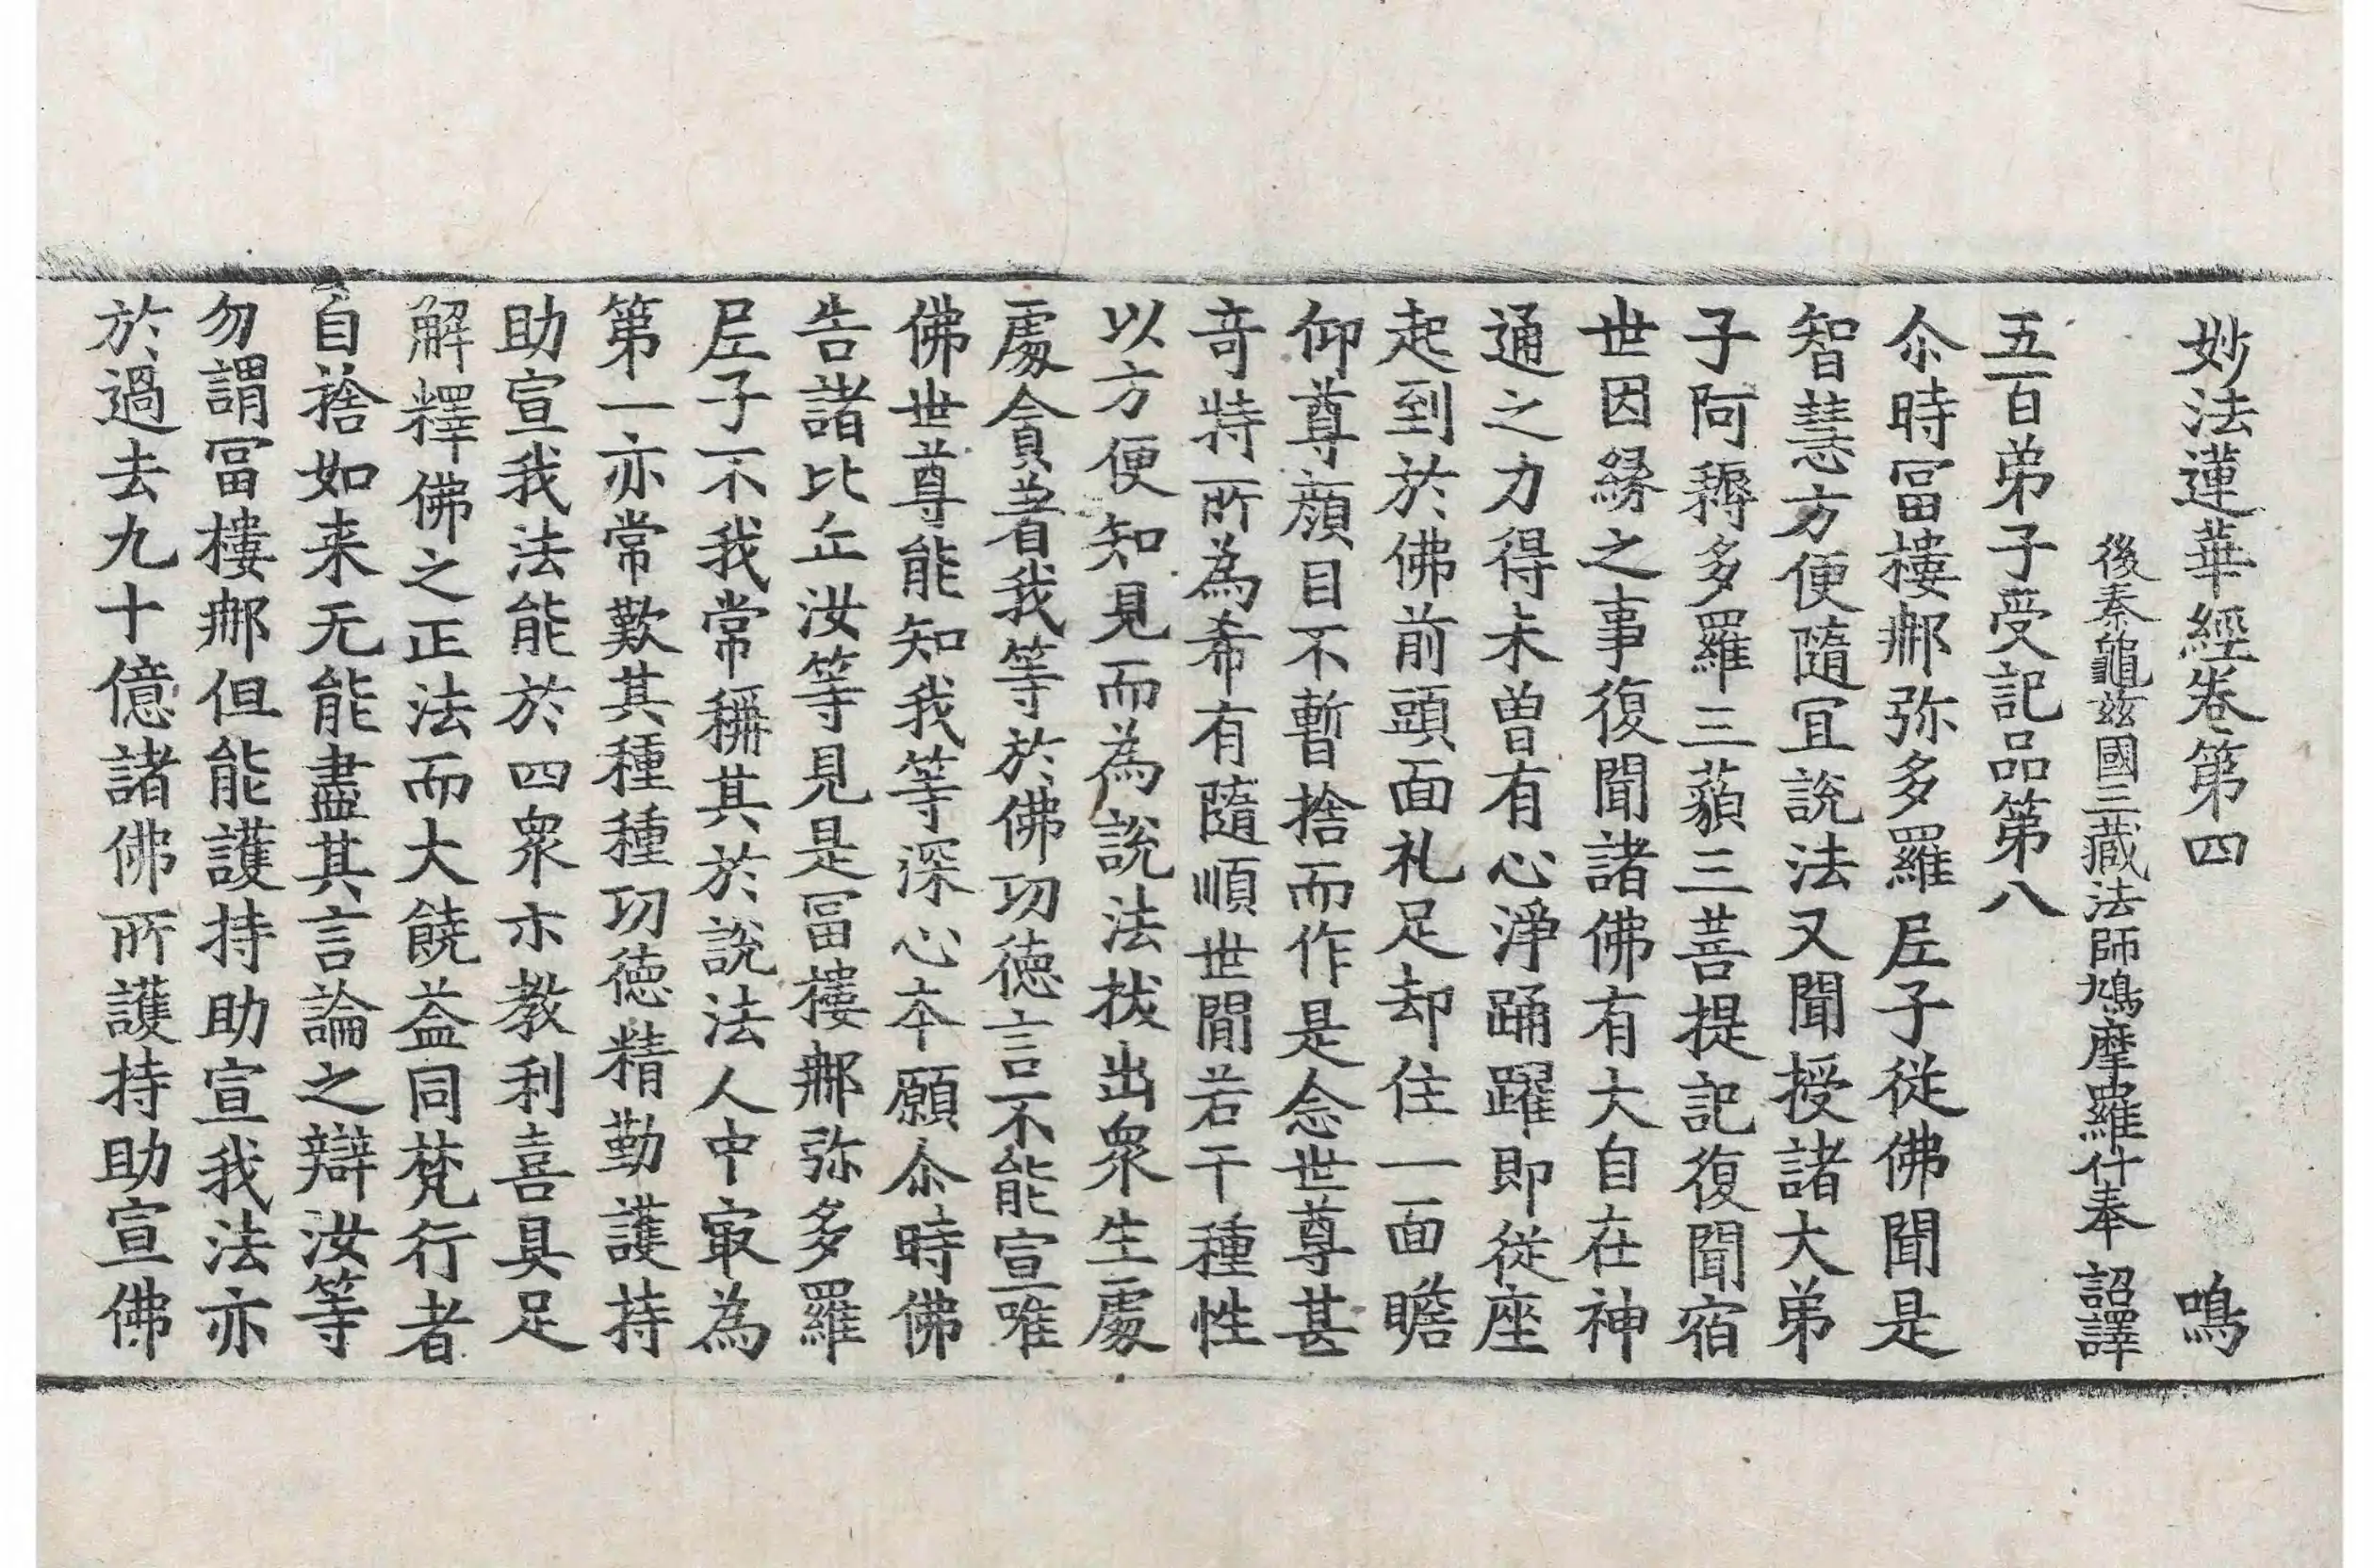 妙法蓮華經卷第四　鳴
後秦龜兹國三藏法師鳩摩羅什奉　詔譯
五百弟子受記品第八
尒時冨樓那弥多羅𡰱子從佛聞是
智慧方便隨冝說法又聞授諸大弟
子阿耨多羅三藐三菩提記復聞宿
世因緣之事復聞諸佛有大自在神
通之力得未曽有心淨踊躍即從座
起到於佛前頭面礼足却住一面瞻
仰尊顔目不暫捨而作是念世尊甚
奇特所為希有隨順世間若干種性
以方便知見而為說法拔出眾生䖏
䖏貪著我等於佛功德言不能宣唯
佛世尊能知我等深心本願尒時佛
告諸比丘汝等見是冨樓那弥多羅
𡰱子不我常稱其於說法人中㝡為
第一亦常歎其種種功德精勤護持
助宣我法能於四眾示教利喜具足
解釋佛之正法而大饒益同梵行者
自捨如来无能盡其言論之辯汝等
勿謂冨樓那但能護持助宣我法亦
於過去九十億諸佛所護持助宣佛